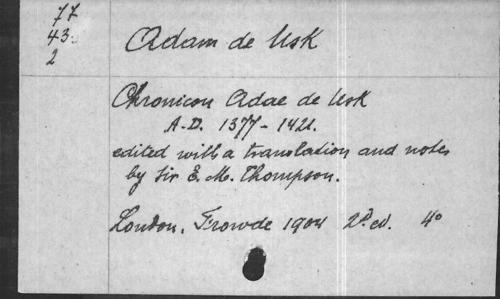 77
43.
2
Adam de Usk
Chronicon Adae de Usk
A.D. 1377-1421.
edited with a translation and notes
by Sir E. M. Thompson.
London, Frowde 1904 2d ed. 4°